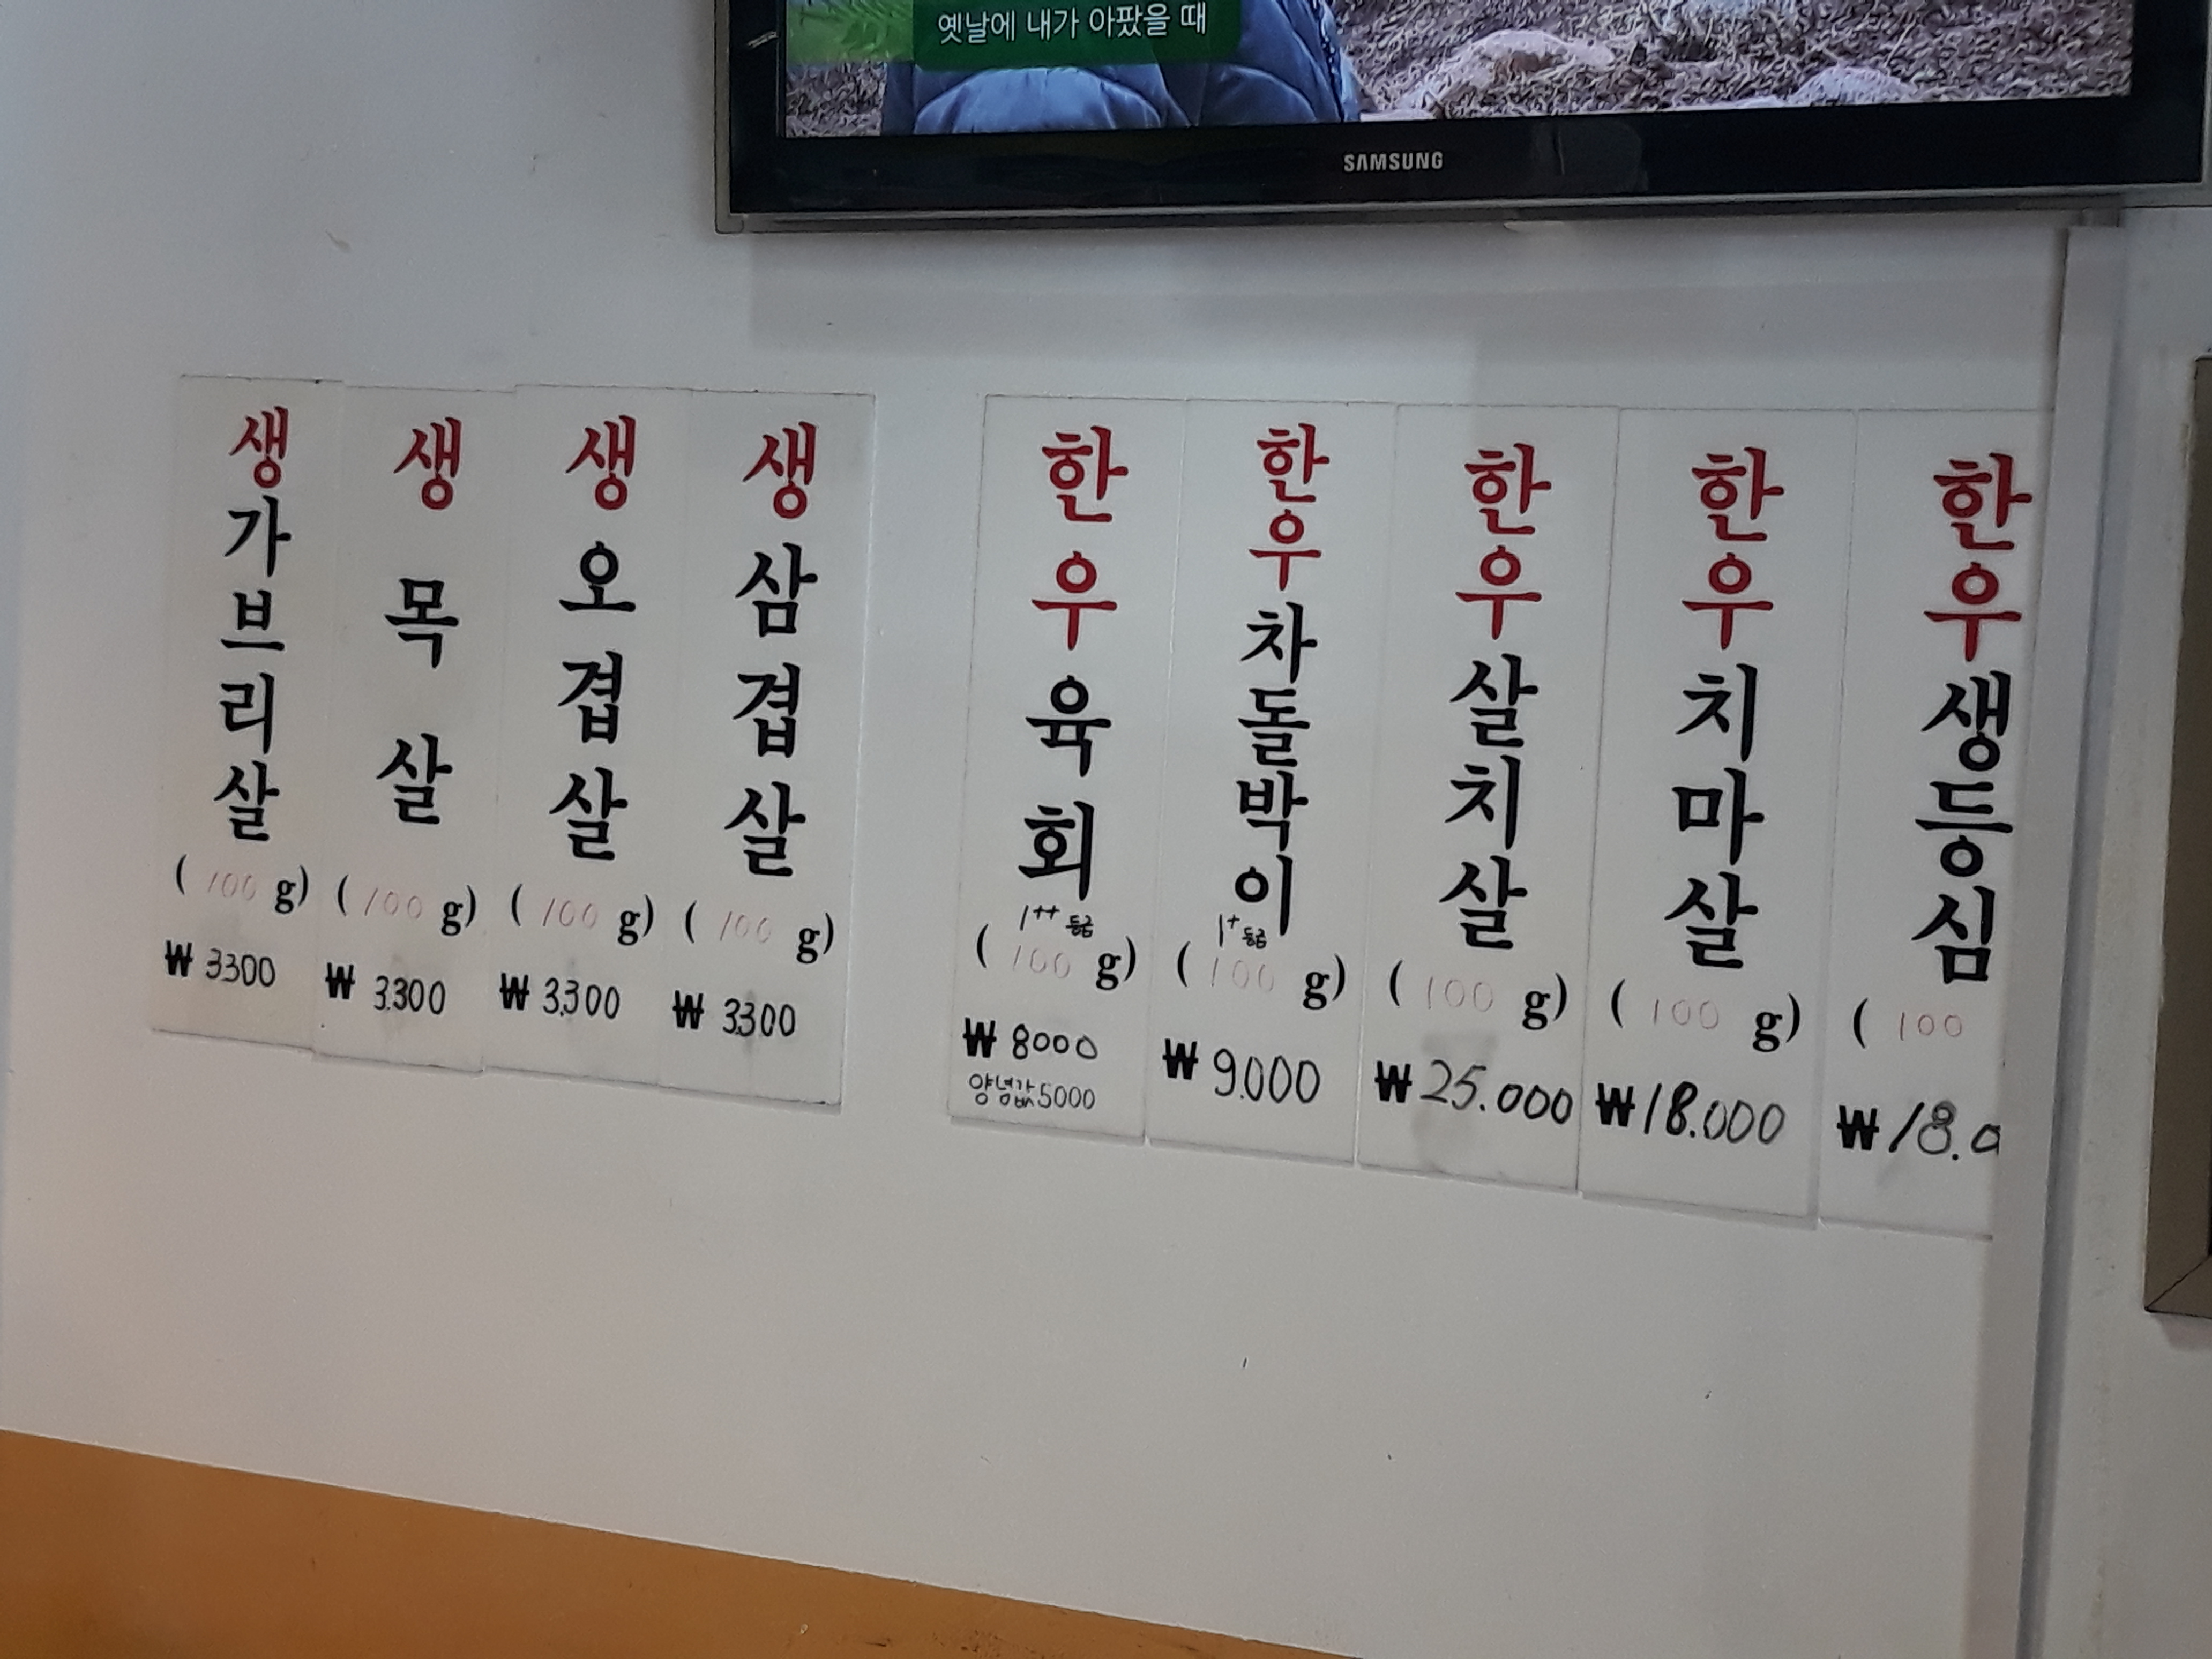 옛날에 내가 아팠을 때
SAMSUNG
생가브리살
(100 g)
₩ 3300
생목살
(100 g)
₩ 3.300
생오겹살
(100 g)
₩ 3.300
생삼겹살
(100 g)
₩ 3.300
한우육회
1++등급
(100 g)
₩ 8000
양념값 5000
한우차돌박이
1+등급
(100 g)
₩ 9.000
한우살치살
(100 g)
₩ 25.000
한우치마살
(100 g)
₩ 18.000
한우생등심
(100
₩ 18.0